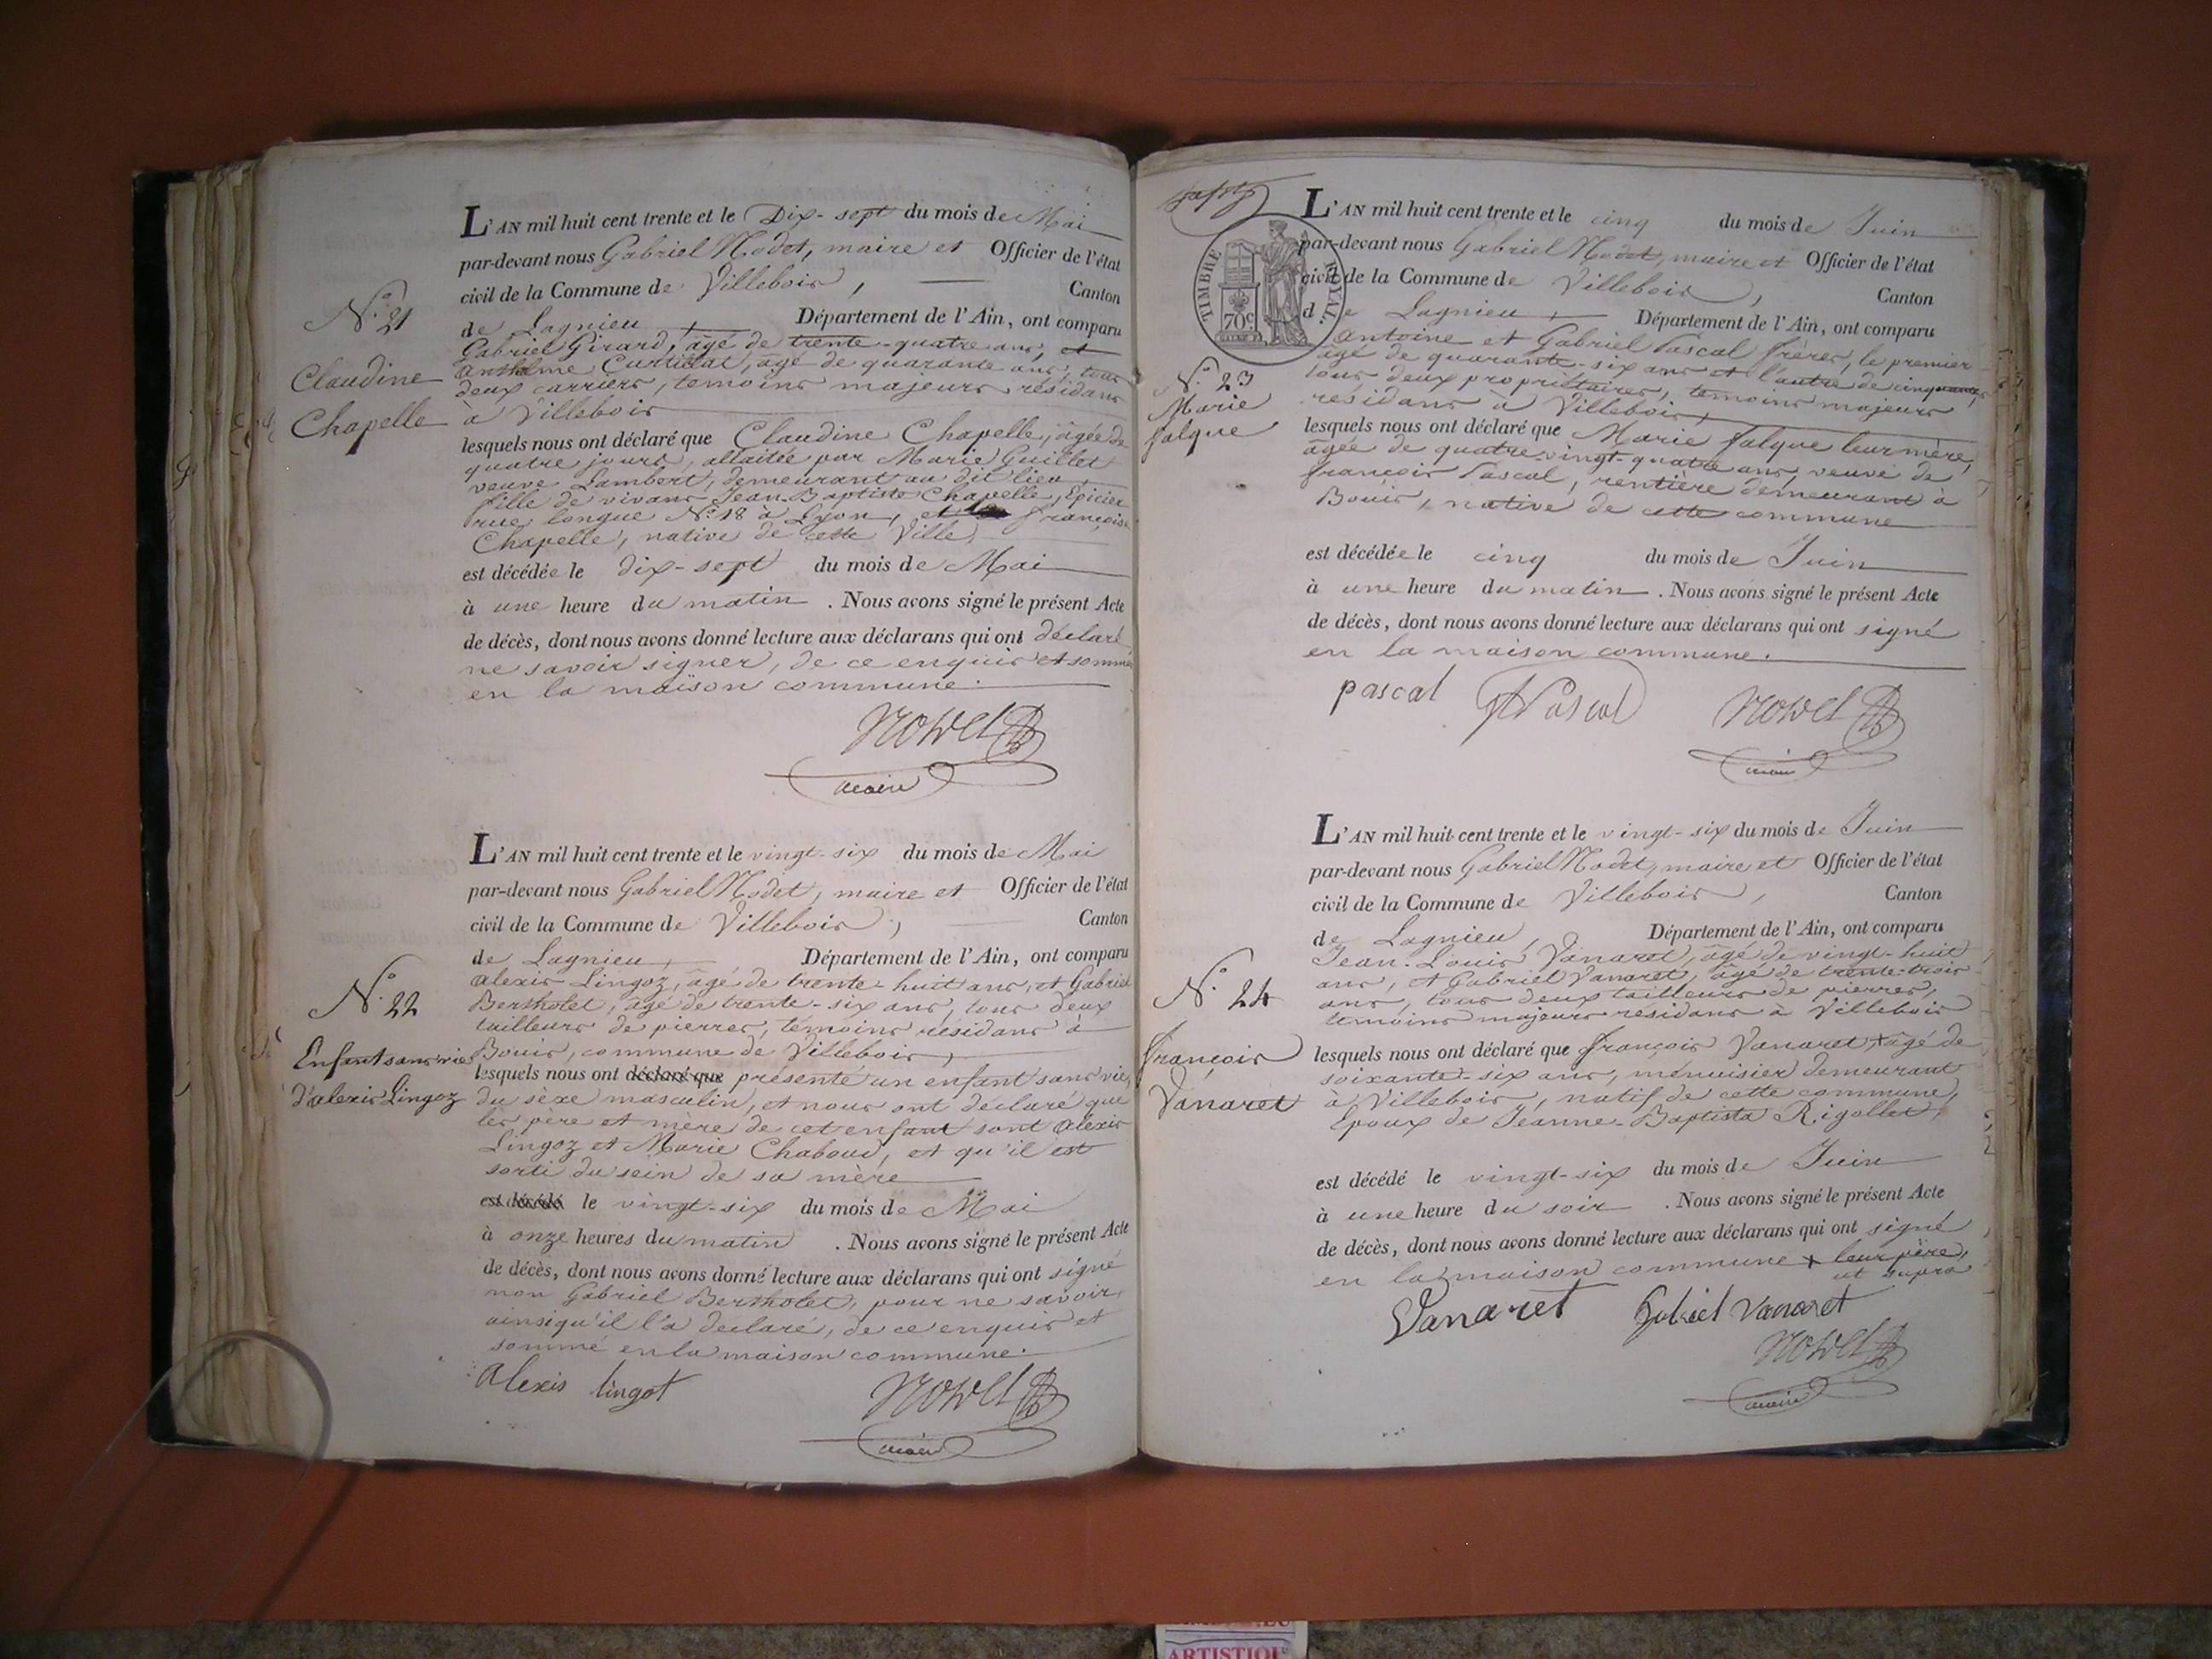 L'AN mil huit cent trente et le Dix-sept du mois de Mai
par-devant nous Gabriel Nodet, maire et Officier de l'état
civil de la Commune de Villebois, Canton
de Lagnieu, Département de l'Ain, ont comparu
N.o 21
Claudine
Chapelle
Gabriel Girard, âgé de trente-quatre ans, et
Anthelme Curtillat, âgé de quarante ans, tous
deux carriers, temoins majeurs résidans
à Villebois
lesquels nous ont déclaré que Claudine Chapelle, âgée de
quatre jours, allaitée par Marie Guillet
veuve Lambert, demeurant au dit lieu,
fille de vivans Jean-Baptiste Chapelle, Epicier
rue longue N.o 18 à Lyon, et françoise
Chapelle, native de cette Ville,
est décédée le dix-sept du mois de Mai
à une heure du matin. Nous avons signé le présent Acte
de décès, dont nous avons donné lecture aux déclarans qui ont déclaré
ne savoir signer, de ce enquis et sommé
en la maison commune.
Nodet
maire
L'AN mil huit cent trente et le vingt-six du mois de Mai
par-devant nous Gabriel Nodet, maire et Officier de l'état
civil de la Commune de Villebois, Canton
de Lagnieu, Département de l'Ain, ont comparu
N.o 22
Enfant sans vie
d'alexis Lingoz
alexis Lingoz, âgé de trente-huit ans, et Gabriel
Bertholet, âgé de trente-six ans, tous deux
tailleurs de pierres, témoins résidans à
Bouis, commune de Villebois,
lesquels nous ont déclaré que présenté un enfant sans vie,
du sèxe masculin, et nous ont déclaré que
les père et mère de cet enfant sont alexis
Lingoz et Marie Chaboud, et qu'il est
sorti du sein de sa mère
est décédé le vingt-six du mois de Mai
à onze heures du matin. Nous avons signé le présent Acte
de décès, dont nous avons donné lecture aux déclarans qui ont signé
non Gabriel Bertholet, pour ne savoir,
ainsi qu'il l'a déclaré, de ce enquis et
sommé en la maison commune.
Alexis lingot
Nodet
maire
TIMBRE ROYAL
70c
L'AN mil huit cent trente et le cinq du mois de Juin
par-devant nous Gabriel Nodet, maire et Officier de l'état
civil de la Commune de Villebois, Canton
de Lagnieu, Département de l'Ain, ont comparu
N.o 23
Marie
falque
Antoine et Gabriel Pascal frères, le premier
âgé de quarante-six ans et l'autre de cinquante,
tous deux propriétaires, temoins majeurs,
résidans à Villebois,
lesquels nous ont déclaré que Marie falque leur mère,
âgée de quatre-vingt-quatre ans, veuve de
françois Pascal, rentière demeurant à
Bouis, native de cette commune
est décédée le cinq du mois de Juin
à une heure du matin. Nous avons signé le présent Acte
de décès, dont nous avons donné lecture aux déclarans qui ont signé
en la maison commune.
pascal Pascal Nodet
maire
L'AN mil huit cent trente et le vingt-six du mois de Juin
par-devant nous Gabriel Nodet, maire et Officier de l'état
civil de la Commune de Villebois, Canton
de Lagnieu, Département de l'Ain, ont comparu
N.o 24
françois
Vanaret
Jean-Louis Vanaret, âgé de vingt-huit
ans, et Gabriel Vanaret, âgé de trente-trois
ans, tous deux tailleurs de pierres,
temoins majeurs résidans à Villebois
lesquels nous ont déclaré que françois Vanaret, + âgé de
soixante-six ans, menuisier demeurant
à Villebois, natif de cette commune,
Epoux de Jeanne-Baptista Rigollet,
est décédé le vingt-six du mois de Juin
à une heure du soir. Nous avons signé le présent Acte
de décès, dont nous avons donné lecture aux déclarans qui ont signé
en la maison commune + leur père,
ut supra
Vanaret Gabriel Vanaret
Nodet
maire
ARTISTIQUE